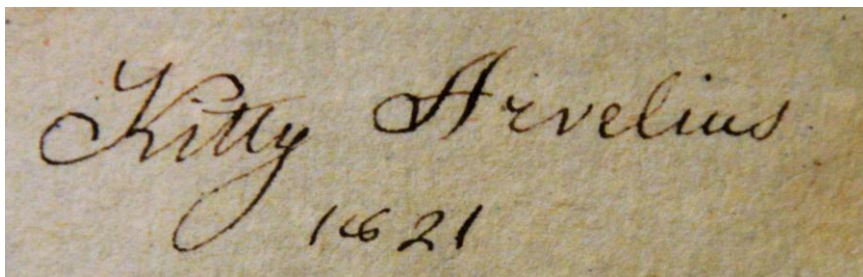 Kitty Arvelius
1821